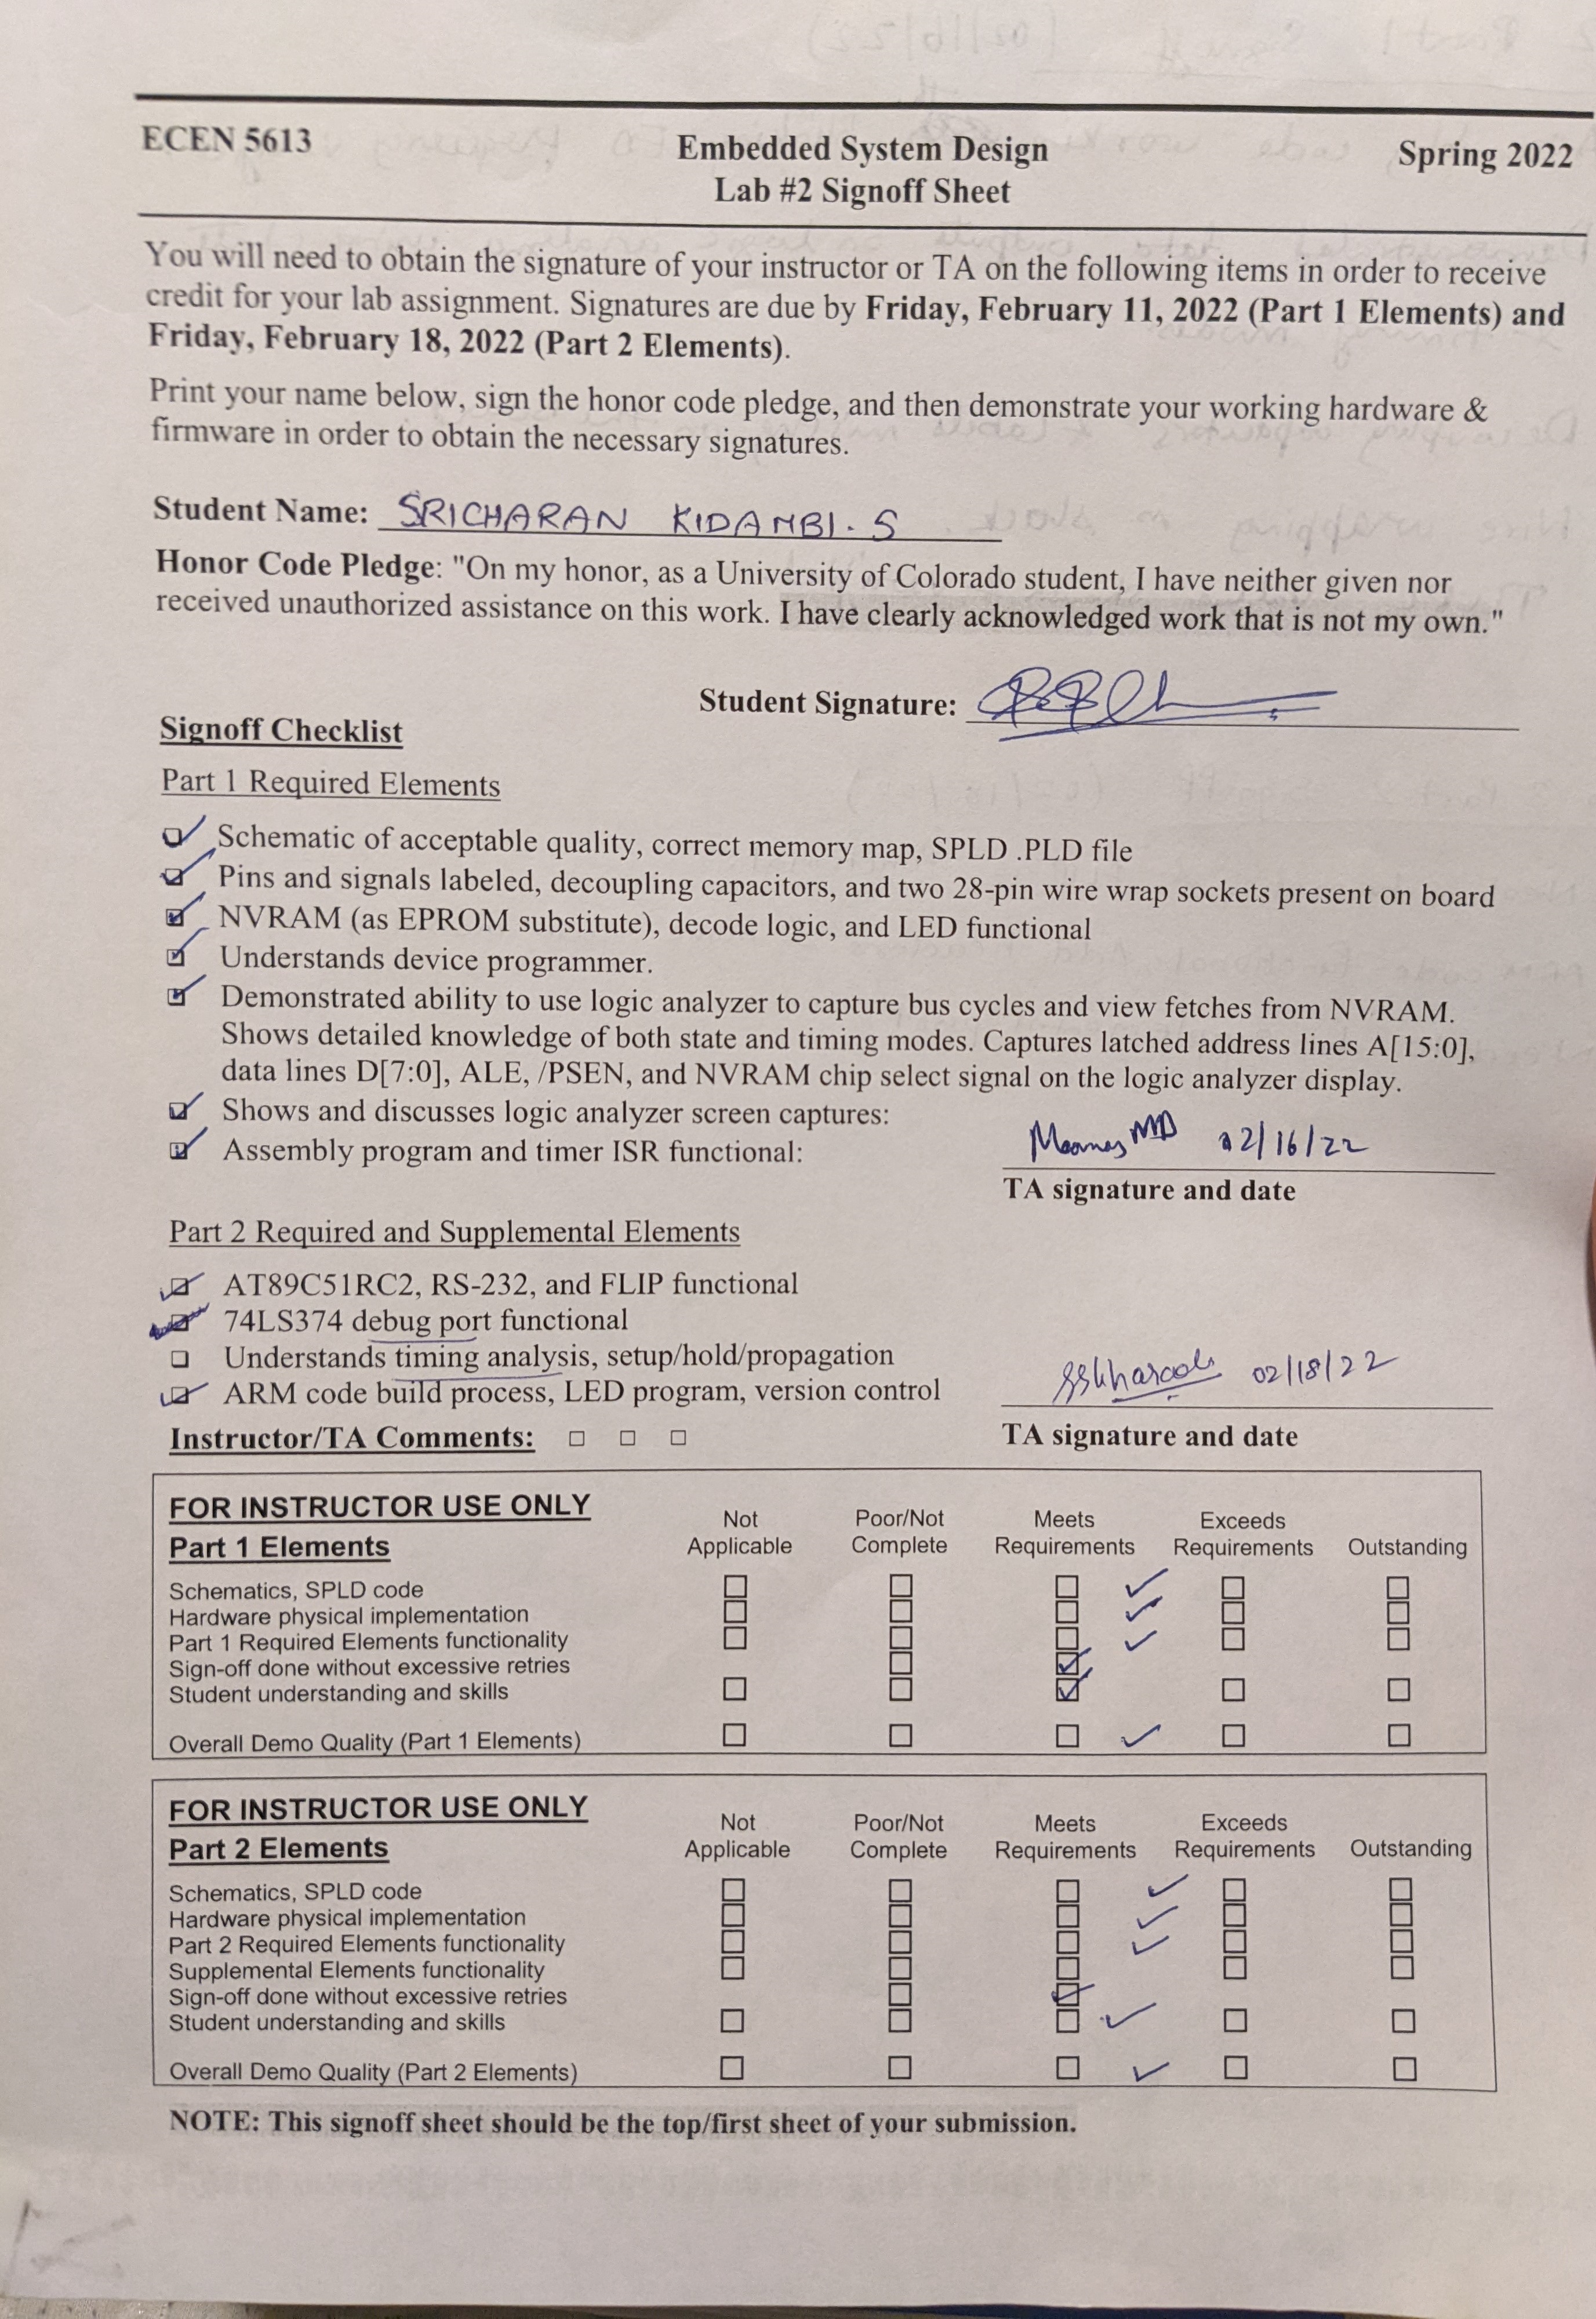 ECEN 5613
Embedded System Design
Spring 2022
Lab #2 Signoff Sheet
You will need to obtain the signature of your instructor or TA on the following items in order to receive
credit for your lab assignment. Signatures are due by Friday, February 11, 2022 (Part 1 Elements) and
Friday, February 18, 2022 (Part 2 Elements).
Print your name below, sign the honor code pledge, and then demonstrate your working hardware &
firmware in order to obtain the necessary signatures.
Student Name: SRICHARAN KIDAMBI. S
Honor Code Pledge: "On my honor, as a University of Colorado student, I have neither given nor
received unauthorized assistance on this work. I have clearly acknowledged work that is not my own."
Student Signature:
Signoff Checklist
Part 1 Required Elements
Schematic of acceptable quality, correct memory map, SPLD .PLD file
Pins and signals labeled, decoupling capacitors, and two 28-pin wire wrap sockets present on board
NVRAM (as EPROM substitute), decode logic, and LED functional
Understands device programmer.
Demonstrated ability to use logic analyzer to capture bus cycles and view fetches from NVRAM.
Shows detailed knowledge of both state and timing modes. Captures latched address lines A[15:0],
data lines D[7:0], ALE, /PSEN, and NVRAM chip select signal on the logic analyzer display.
Shows and discusses logic analyzer screen captures:
Assembly program and timer ISR functional:
02/16/22
TA signature and date
Part 2 Required and Supplemental Elements
AT89C51RC2, RS-232, and FLIP functional
74LS374 debug port functional
Understands timing analysis, setup/hold/propagation
ARM code build process, LED program, version control
02/18/22
Instructor/TA Comments:
TA signature and date
FOR INSTRUCTOR USE ONLY
Part 1 Elements
Not Applicable
Poor/Not Complete
Meets Requirements
Exceeds Requirements
Outstanding
Schematics, SPLD code
Hardware physical implementation
Part 1 Required Elements functionality
Sign-off done without excessive retries
Student understanding and skills
Overall Demo Quality (Part 1 Elements)
FOR INSTRUCTOR USE ONLY
Part 2 Elements
Not Applicable
Poor/Not Complete
Meets Requirements
Exceeds Requirements
Outstanding
Schematics, SPLD code
Hardware physical implementation
Part 2 Required Elements functionality
Supplemental Elements functionality
Sign-off done without excessive retries
Student understanding and skills
Overall Demo Quality (Part 2 Elements)
NOTE: This signoff sheet should be the top/first sheet of your submission.